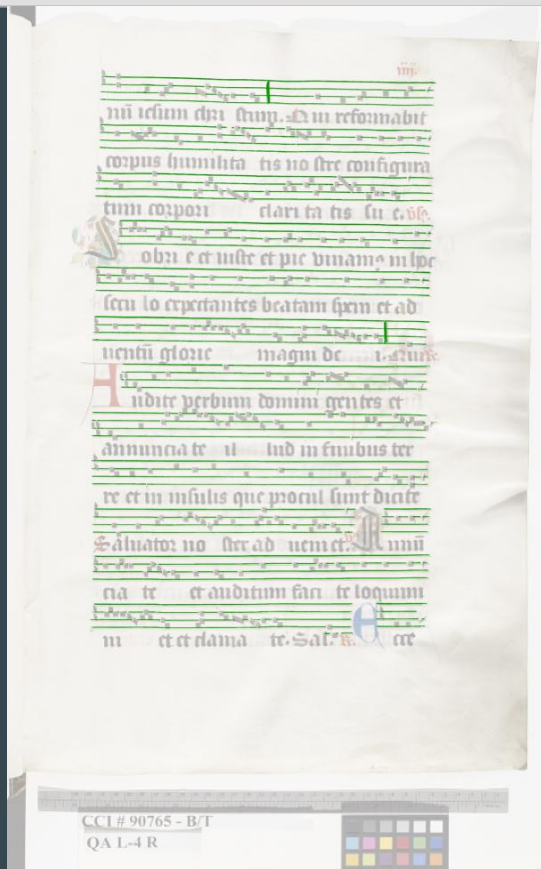 iiij.
nũ iesum chri stum. Qui reformabit
corpus humilita tis no stre configura
tum corpori clari ta tis su e. v̉s.
Sobri e et iuste et pie viuamꝰ in hoc
secu lo expectantes beatam spem et ad
uentũ glorie magni de i. Qui
Audite verbum domini gentes et
annuncia te il lud in finibus ter
re et in insulis que procul sunt dicite
Saluator no ster ad ueniet. Annũ
cia te et auditum faci te loquimi
ni et et clama te. Sal. Ecce
CCI # 90765 - B/T
QA L-4 R